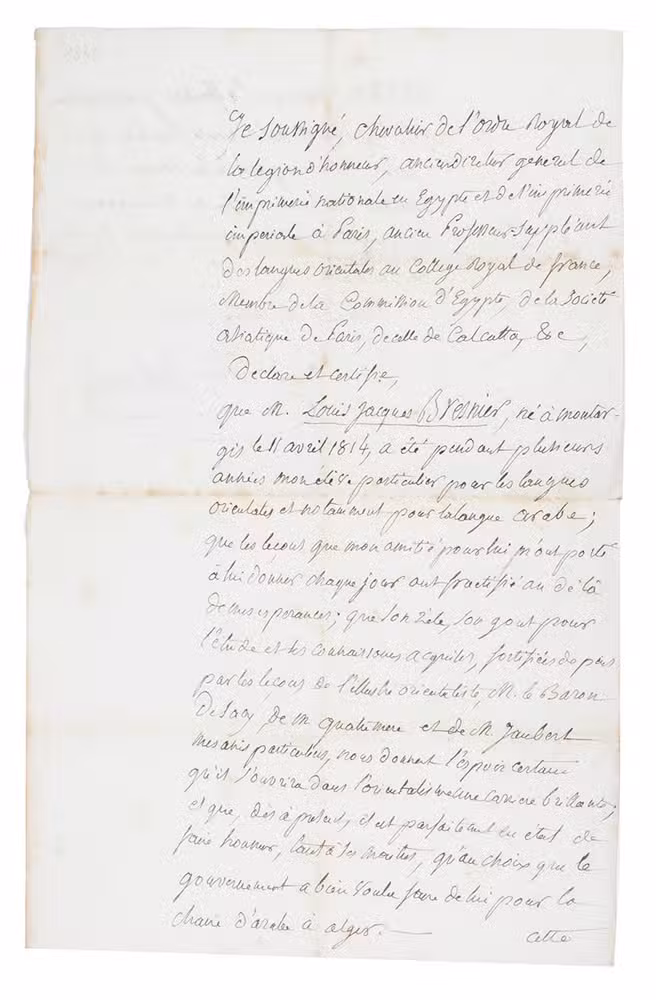 Je soussigné, chevalier de l'ordre Royal de
la legion d'honneur, ancien directeur general de
l'imprimerie nationale en Egypte et de l'imprimerie
imperiale à Paris, ancien Professeur-Suppléant
des langues orientales au College Royal de france,
Membre de la Commission d'Egypte, de la Societé
asiatique de Paris, de celle de Calcutta, &c,
Declare et certifie,
que M. Louis Jacques Bresnier, né à montar-
gis le 11 avril 1814, a été pendant plusieurs
années mon élève particulier pour les langues
orientales et notamment pour la langue arabe;
que les leçons que mon amitié pour lui m'ont porté
à lui donner chaque jour ont fructifié au de là
de mes esperances; que son zèle, son gout pour
l'étude et les connaissances acquises, fortifiées depuis
par les leçons de l'illustre orientaliste, M. le Baron
De Sacy, de M. Quatremere et de M. Jaubert
mes amis particuliers, nous donnent l'espoir certain
qu'il s'ouvrira dans l'orientalisme une carriere brillante;
et que, dès à présent, il est parfaitement en état de
faire honneur, tant à ses maitres, qu'au choix que le
gouvernement a bien voulu faire de lui pour la
chaire d'arabe à alger. —
cette